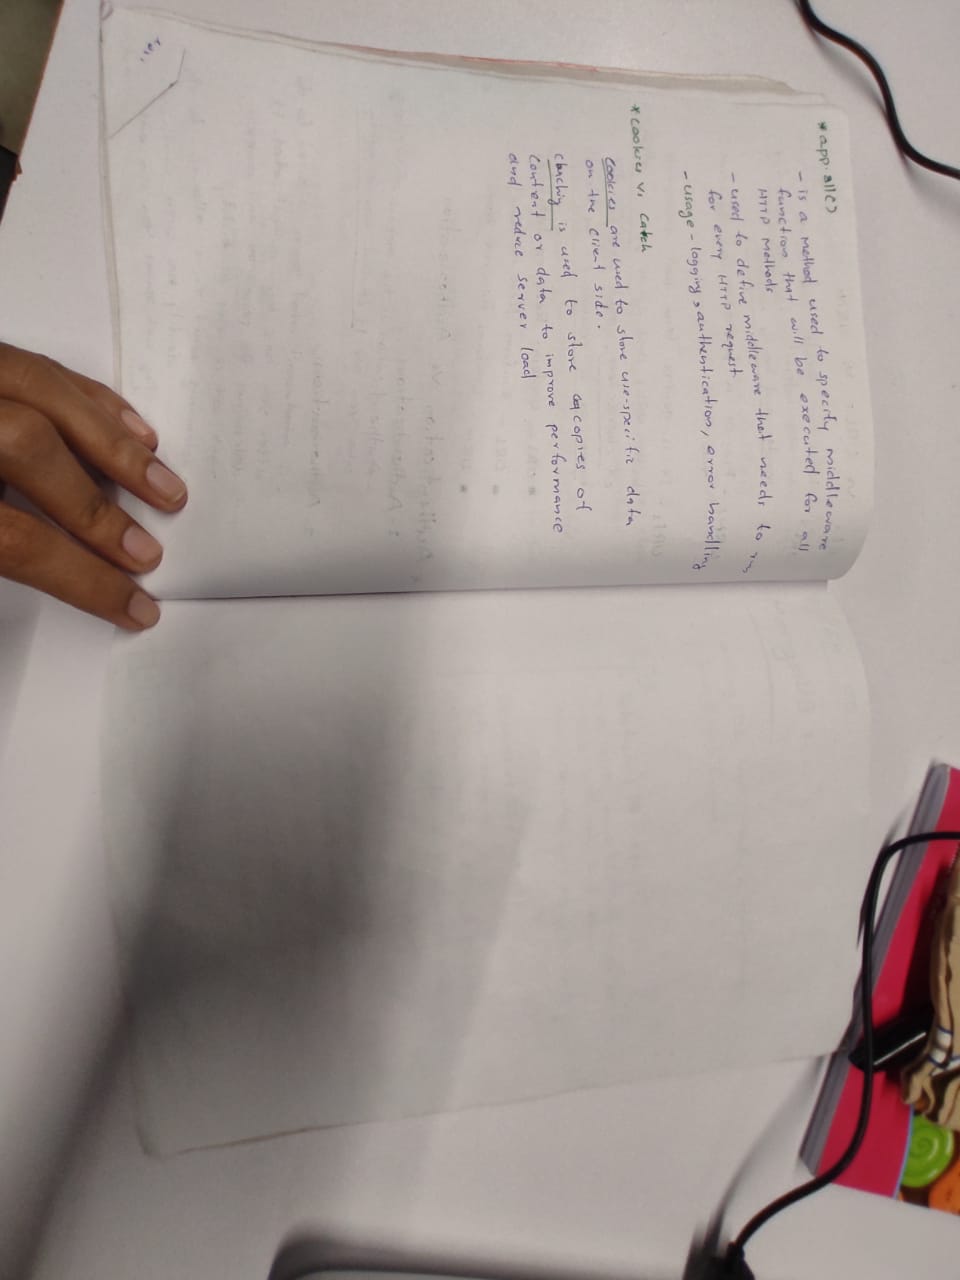 * app.all()
- is a method used to specify middleware
function that will be executed for all
HTTP Methods
- used to define middleware that needs to run
for every HTTP request
- usage - logging, authentication, error handling
* cookies vs Catch
cookies are used to store use-specific data
on the client side.
caching is used to store copies of
content or data to improve performance
and reduce server load